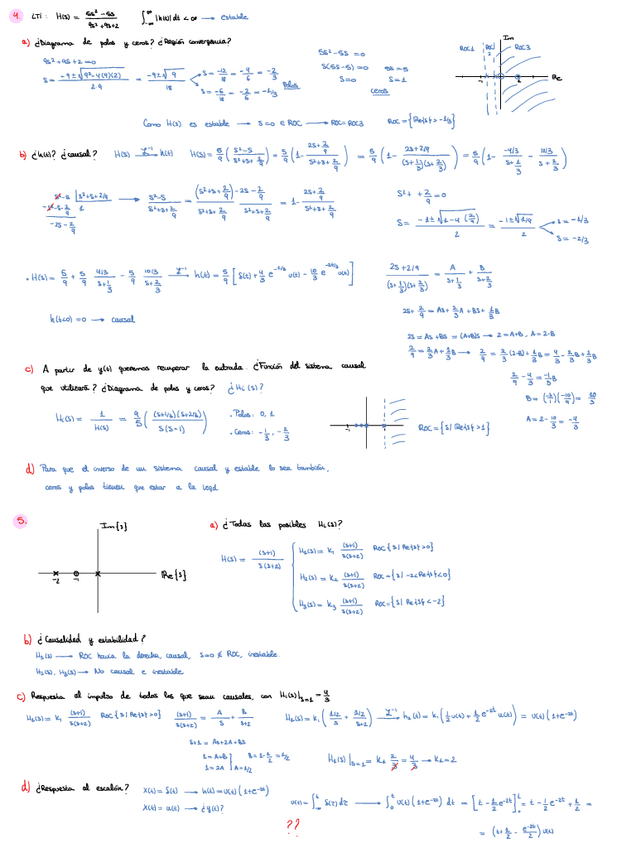 4. LTI: H(s) = (5s² - 5s)/(9s² + 9s + 2)   ∫_{-∞}^{∞} |h(t)| dt < ∞ → estable
a) ¿Diagrama de polos y ceros? ¿Región convergencia?
9s² + 9s + 2 = 0
s = (-9 ± √(9² - 4(9)(2)))/(2·9) = (-9 ± √9)/18
s = -12/18 = -4/6 = -2/3
s = -6/18 = -2/6 = -1/3
Polos
5s² - 5s = 0
s(5s - 5) = 0   5s = 5
s = 0   s = 1
ceros
Im
ROC1 ROC2 ROC3
Re
Como H(s) es estable → s=0 ∈ ROC → ROC = ROC3   ROC = {Re{s} > -1/3}
b) ¿h(t)? ¿causal?   H(s) → h(t)   H(s) = 5/9 ((s² - s)/(s² + s + 2/9)) = 5/9 (1 - (2s + 2/9)/(s² + s + 2/9)) = 5/9 (1 - (2s + 2/9)/((s + 1/3)(s + 2/3))) = 5/9 (1 - (-4/3)/(s + 1/3) - (10/3)/(s + 2/3))
s² - s | s² + s + 2/9
-s² - s - 2/9   1
-2s - 2/9
→ (s² - s)/(s² + s + 2/9) = ((s² + s + 2/9) - 2s - 2/9)/(s² + s + 2/9) = 1 - (2s + 2/9)/(s² + s + 2/9)
s² + + 2/9 = 0
s = (-1 ± √(1 - 4(2/9)))/2 = (-1 ± √(1/9))/2
s = -1/3
s = -2/3
· H(s) = 5/9 + 5/9 (4/3)/(s + 1/3) - 5/9 (10/3)/(s + 2/3) → h(t) = 5/9 [δ(t) + 4/3 e^{-t/3} u(t) - 10/3 e^{-2t/3} u(t)]
(2s + 2/9)/((s + 1/3)(s + 2/3)) = A/(s + 1/3) + B/(s + 2/3)
h(t<0) = 0 → causal
2s + 2/9 = As + 2/3 A + Bs + 1/3 B
2s = As + Bs = (A+B)s → 2 = A+B, A = 2-B
2/9 = 2/3 A + 1/3 B → 2/9 = 2/3 (2-B) + 1/3 B = 4/3 - 2/3 B + 1/3 B
2/9 - 4/3 = -1/3 B
B = (-3/1)(-10/9) = 10/3
A = 2 - 10/3 = -4/3
c) A partir de y(t) queremos recuperar la entrada. ¿Función del sistema causal
que utilizará? ¿Diagrama de polos y ceros? ¿Hi(s)?
Hi(s) = 1/H(s) = 9/5 (((s + 1/3)(s + 2/3))/(s(s - 1)))
· Polos: 0, 1
· Ceros: -1/3, -2/3
ROC = {s | Re{s} > 1}
d) Para que el inverso de un sistema causal y estable lo sea también,
ceros y polos tienen que estar a la izqd.
5.
Im{s}
Re{s}
-2 -1
a) ¿Todas las posibles Hi(s)?
H(s) = (s+1)/(s(s+2))
H1(s) = K1 (s+1)/(s(s+2))   ROC {s | Re{s} > 0}
H2(s) = K2 (s+1)/(s(s+2))   ROC = {s | -2 < Re{s} < 0}
H3(s) = K3 (s+1)/(s(s+2))   ROC = {s | Re{s} < -2}
b) ¿Causalidad y estabilidad?
H1(s) → ROC hacia la derecha causal, s=0 ∉ ROC, inestable.
H2(s), H3(s) → No causal e inestable
c) Respuesta al impulso de todos los que sean causales, con H1(s)|s=1 = 4/3
H1(s) = K1 (s+1)/(s(s+2))   ROC {s | Re{s} > 0}   (s+1)/(s(s+2)) = A/s + B/(s+2)   H1(s) = K1 ((1/2)/s + (1/2)/(s+2)) → h1(t) = K1 (1/2 u(t) + 1/2 e^{-2t} u(t)) = u(t)(1 + e^{-2t})
s+1 = As + 2A + Bs
1 = A+B   B = 1 - 1/2 = 1/2
1 = 2A   A = 1/2
H1(s)|s=1 = K1 2/3 = 4/3 → K1 = 2
d) ¿Respuesta al escalón?   x(t) = δ(t) → h(t) = u(t)(1 + e^{-2t})
x(t) = u(t) → ¿y(t)?
u(t) = ∫_{-∞}^{t} δ(τ) dτ → ∫_0^t u(t)(1 + e^{-2t}) dt = [t - 1/2 e^{-2t}]_0^t = t - 1/2 e^{-2t} + 1/2 =
= (t + 1/2 - e^{-2t}/2) u(t)
??